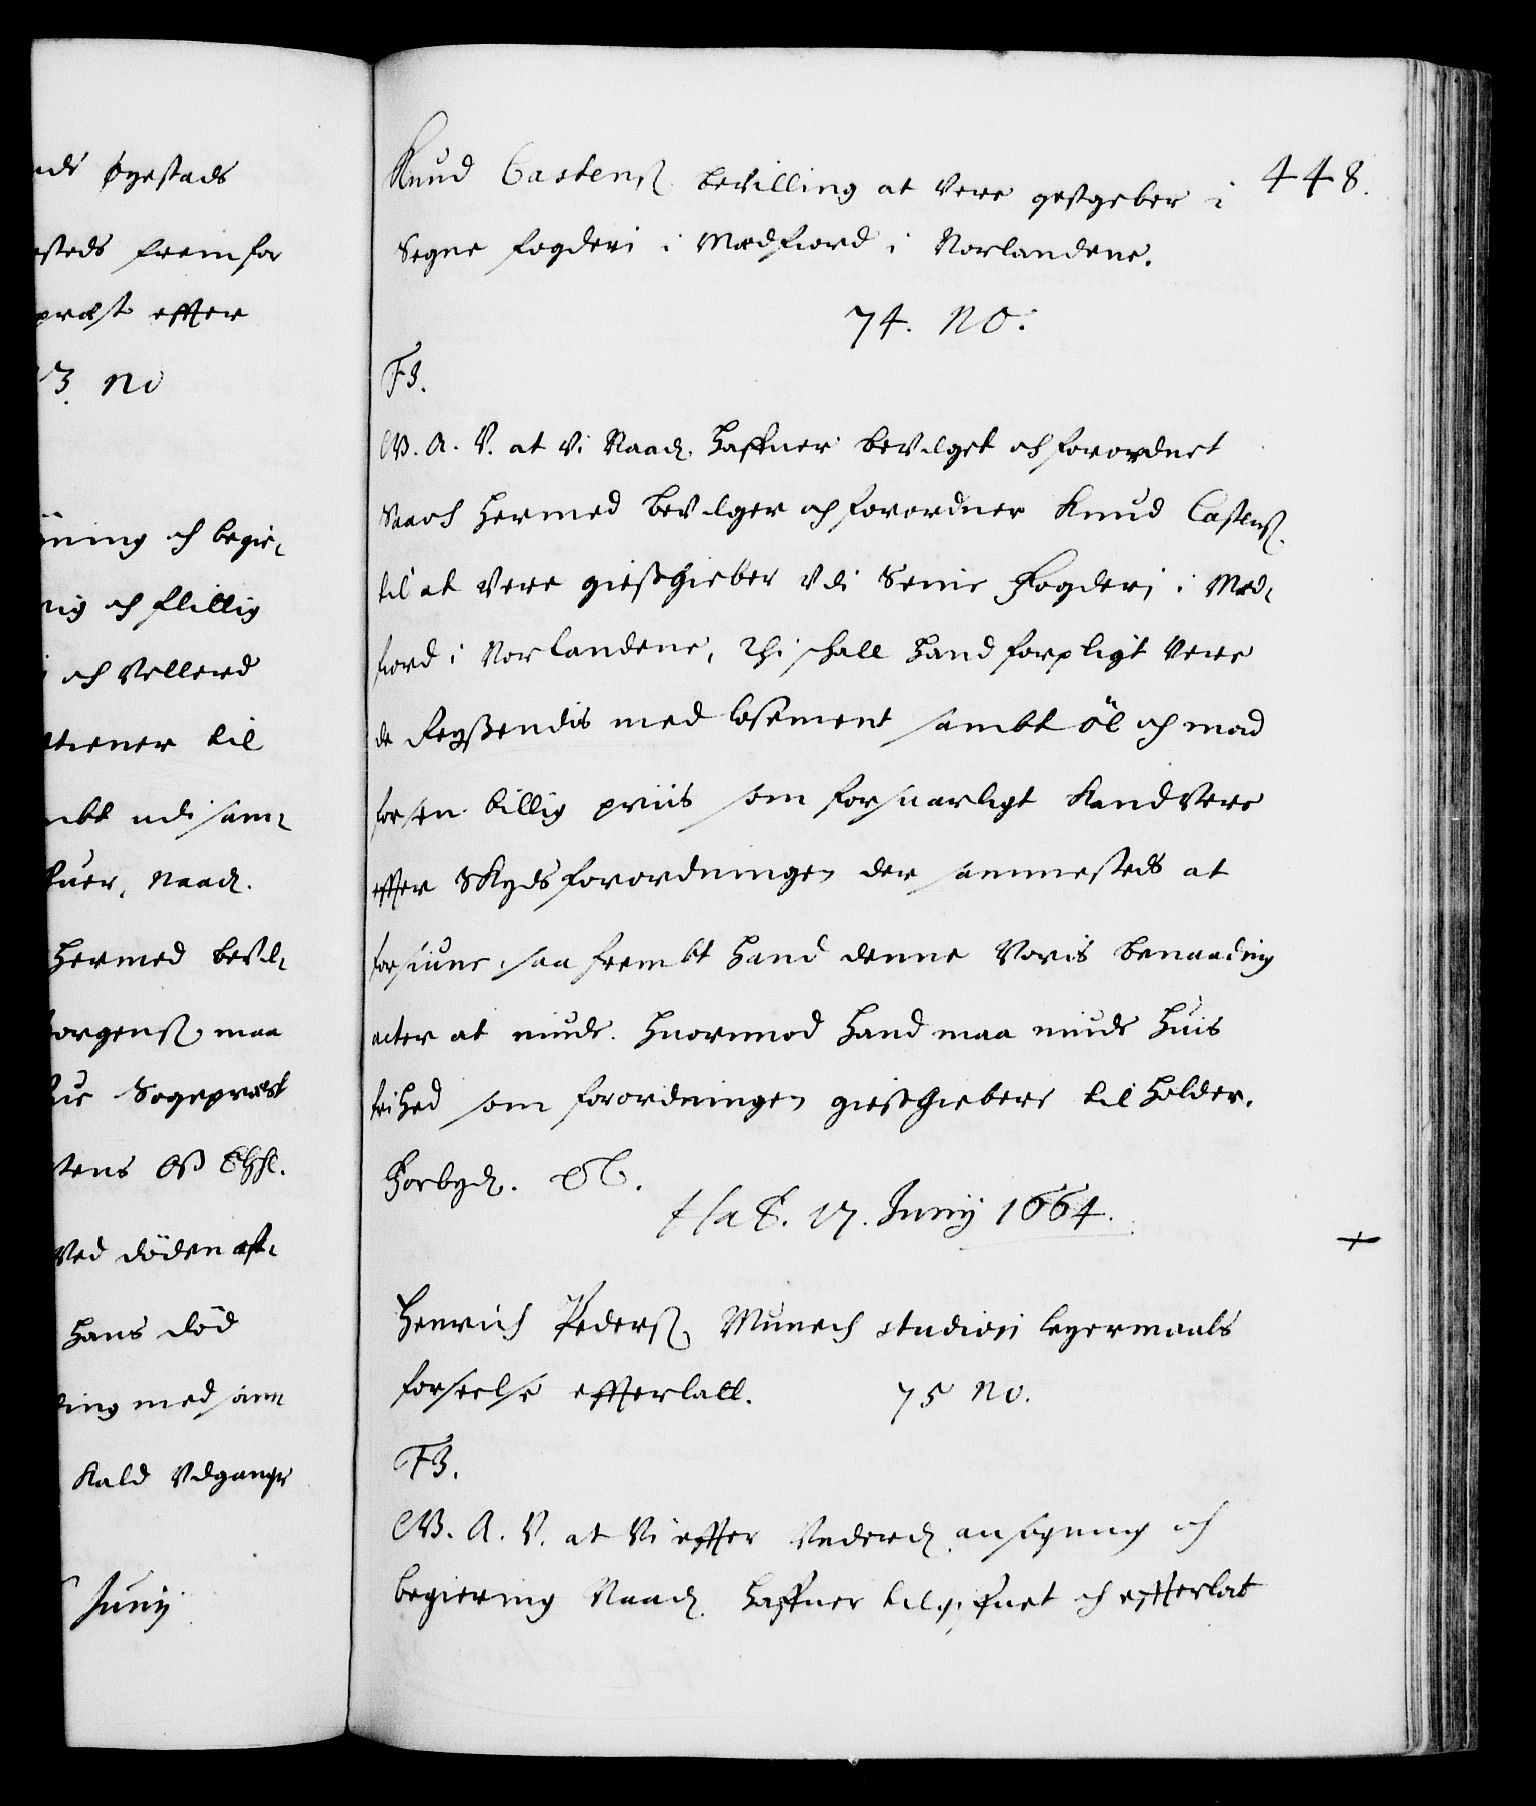 nds Øyestads
steds fremfor
præst effter
3. No
ning och begie¬
nig och flittig
och Vellerd
tiener til
mbt udi sam¬
fuer, Naadl.
hermed bevil¬
orgenß. maa
Sogepræst
stens Oß Ehhl.
Ved döden aff¬
hans död
ting med sam¬
Kald Udgangs
Junij
448.
Knud Castenß. bevilling at Vere gestgeber i
Segne fogderi i Medfiord i Norlandene.
74. No.
F3.
G. A. V. at Vi Naadl. haffuer bevilget och forordnet
Saa och hermed bevilger och forordner Knud Castenß.
til at Vere giestgieber Udi Senie Fogderj i Med¬
fiord i Norlandene, Thi skall hand forpligt Vere
de Reyßendis med losement sambt öl och mad
for en billig priis som forsuarligt Kand Vere
effter Skydsforordningen der sammesteds at
forsiune, saa frembt hand denne Voris benaading
acter at niude. Huorimod hand maa niude huis
frihed som forordningen giestgiebere tilholder.
Forbydl. Etc.
Hafl. 17. Junij 1664.
Henrich Pederß. Munch studiosi leyermaals
forseelse effterlatt. 75 No.
F3.
G. A. V. at Vi effter Underdl. ansögning och
begiering Naadl. haffuer tilgifuet och effterlat